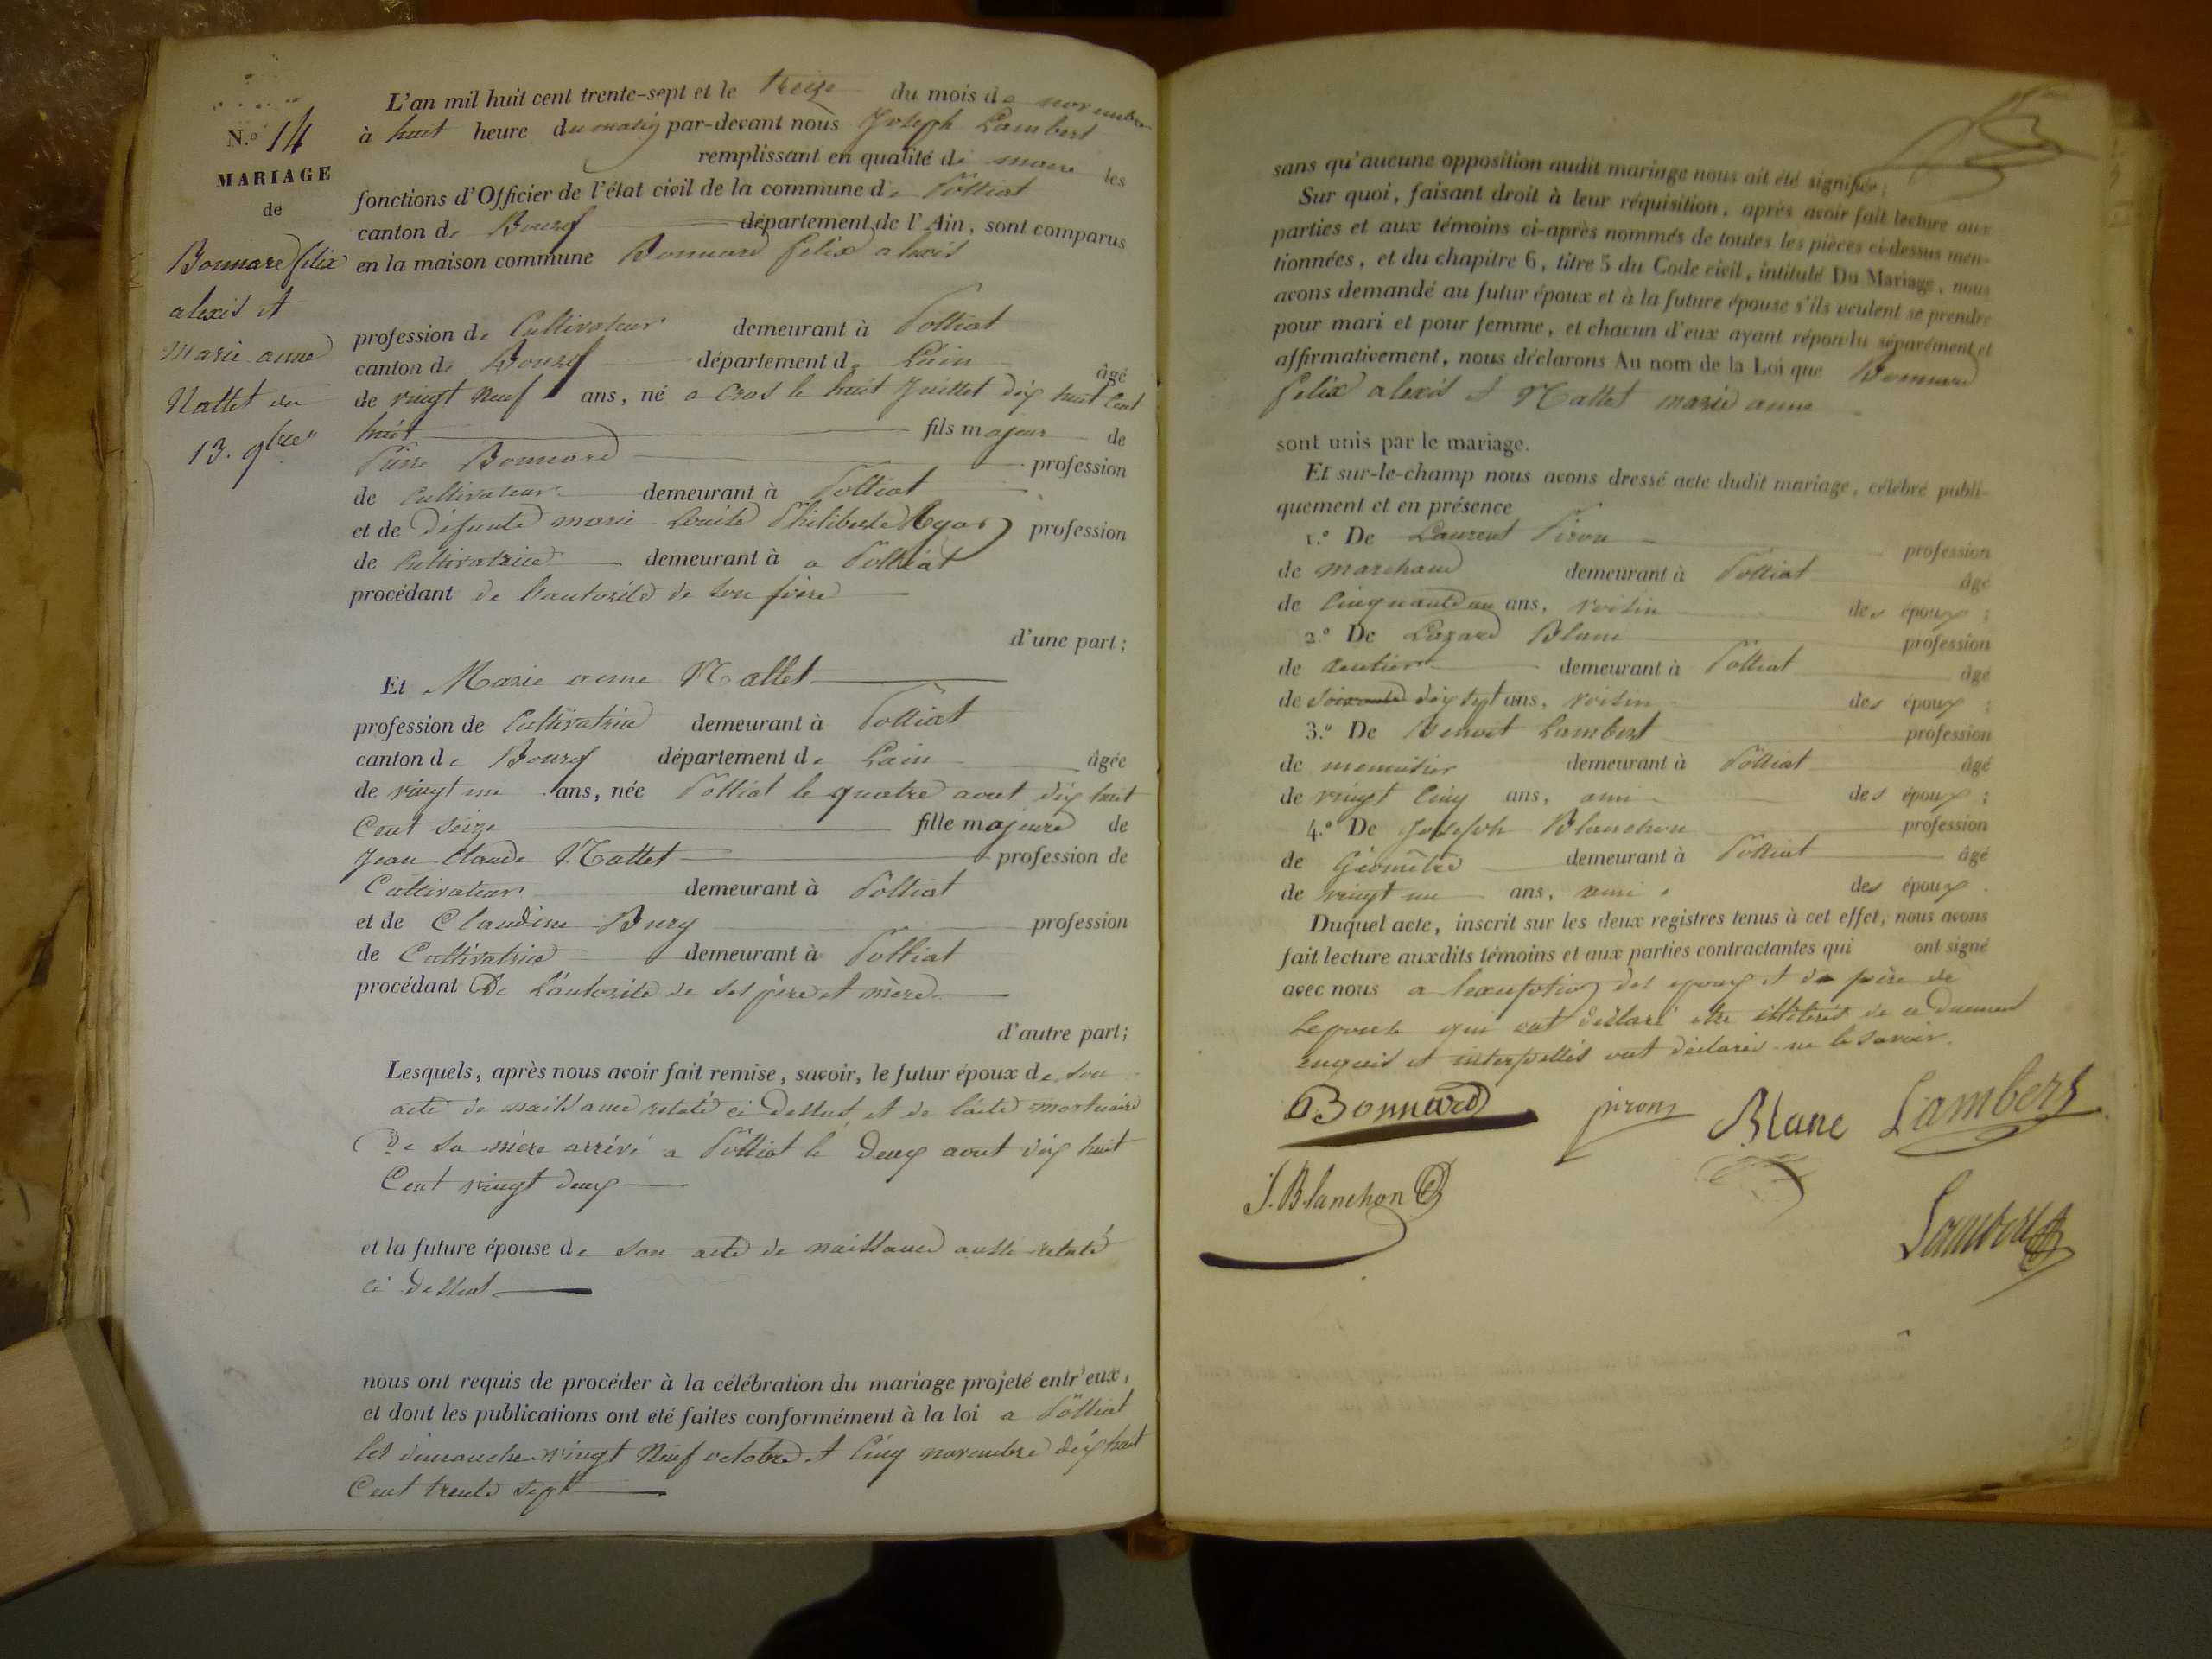 N.º 14
MARIAGE
de
Bonnard felix
alexis et
Marie anne
Nallet du
13. 9bre
L'an mil huit cent trente-sept et le treize du mois de novembre
à huit heure du matin par-devant nous Joseph Lambert
remplissant en qualité de maire les
fonctions d'Officier de l'état civil de la commune de Polliat
canton de Bourg département de l'Ain, sont comparus
en la maison commune Bonnard felix alexis
profession de Cultivateur demeurant à Polliat
canton de Bourg département de Lain âgé
de vingt neuf ans, né a Cras le huit Juillet dix huit Cent
huit fils majeur de
Pierre Bonnard profession
de Cultivateur demeurant à Polliat
et de défunte marie Louise Philiberte profession
de Cultivatrice demeurant à a Polliat
procédant de Lautorité de son père
d'une part;
Et Marie anne Nallet
profession de Cultivatrice demeurant à Polliat
canton de Bourg département de Lain âgée
de vingt un ans, née Polliat le quatre aout dix huit
Cent seize fille majeure de
Jean Claude Nallet profession de
Cultivateur demeurant à Polliat
et de Claudine Bury profession
de Cultivatrice demeurant à Polliat
procédant De Lautorité de ses père et mère
d'autre part;
Lesquels, après nous avoir fait remise, savoir, le futur époux de son
acte de naissance relaté ci dessus et de l'acte mortuaire
De sa mère arrivé a Polliat le Deux aout dix huit
Cent vingt deux
et la future épouse de son acte de naissance aussi relaté
ci dessus
nous ont requis de procéder à la célébration du mariage projeté entr'eux,
et dont les publications ont été faites conformément à la loi a Polliat
les dimanche vingt Neuf octobre et Cinq novembre dix huit
Cent trente sept
sans qu'aucune opposition audit mariage nous ait été signifiée;
Sur quoi, faisant droit à leur réquisition, après avoir fait lecture aux
parties et aux témoins ci-après nommés de toutes les pièces ci-dessus men-
tionnées, et du chapitre 6, titre 5 du Code civil, intitulé Du Mariage, nous
avons demandé au futur époux et à la future épouse s'ils veulent se prendre
pour mari et pour femme, et chacun d'eux ayant répondu séparément et
affirmativement, nous déclarons Au nom de la Loi que Bonnard
felix alexis et Nallet marie anne
sont unis par le mariage.
Et sur-le-champ nous avons dressé acte dudit mariage, célébré publi-
quement et en présence
1.º De Laurent Piron profession
de marchand demeurant à Polliat âgé
de Cinquante un ans, voisin des époux;
2.º De Lazard Blanc profession
de rentier demeurant à Polliat âgé
de soixante dix sept ans, voisin des époux;
3.º De Benoit Lambert profession
de menuisier demeurant à Polliat âgé
de vingt Cinq ans, ami des époux;
4.º De Joseph Blanchon profession
de Géomètre demeurant à Polliat âgé
de vingt un ans, ami des époux.
Duquel acte, inscrit sur les deux registres tenus à cet effet, nous avons
fait lecture auxdits témoins et aux parties contractantes qui ont signé
avec nous a lexception des epoux et du père de
Lepouse qui ont déclaré etre illiterés de ce Duement
enquis et interpellés ont déclarés ne le savoir.
Bonnard piron Blanc Lambert
J. Blanchon
Lambert